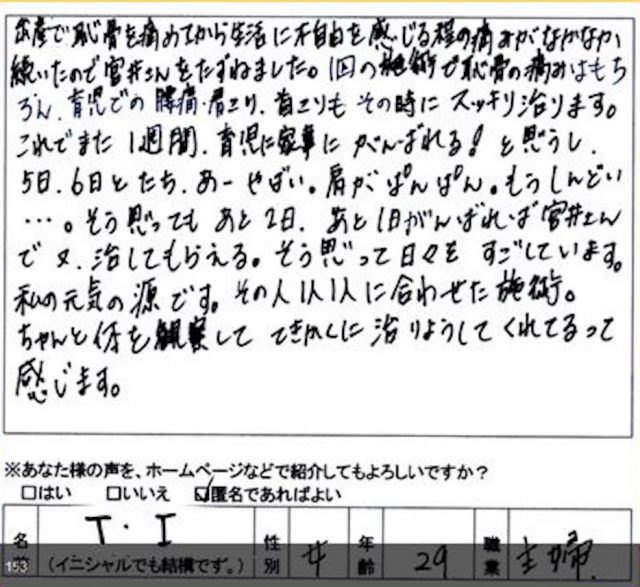 出産で恥骨を痛めてから生活に不自由を感じる程の痛みがなかなか
続いたので宮井さんをたずねました。1回の施術で恥骨の痛みはもち
ろん、育児での腰痛・肩コリ、首コリもその時にスッキリ治ります。
これでまた1週間、育児に家事にがんばれる!と思うし、
5日、6日とたち、あーやばい。肩がぱんぱん。もうしんどい
…。そう思ってもあと2日、あと1日がんばれば宮井さん
で又、治してもらえる。そう思って日々をすごしています。
私の元気の源です。その人1人1人に合わせた施術。
ちゃんと体を観察しててきかくに治りようしてくれてるって
感じます。
※あなた様の声を、ホームページなどで紹介してもよろしいですか?
□はい □いいえ ☑匿名であればよい
名前 T・I (イニシャルでも結構です。) 性別 女 年齢 29 職業 主婦
153